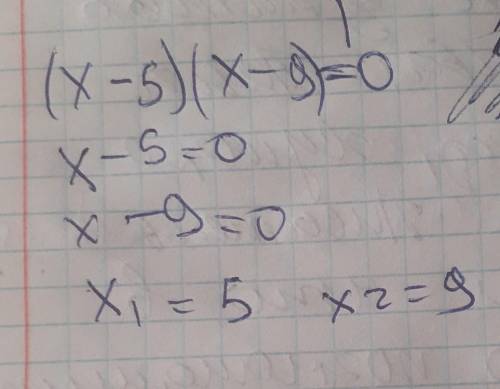 (x-5)(x-9)=0
x-5=0
x-9=0
x₁=5 x2=9